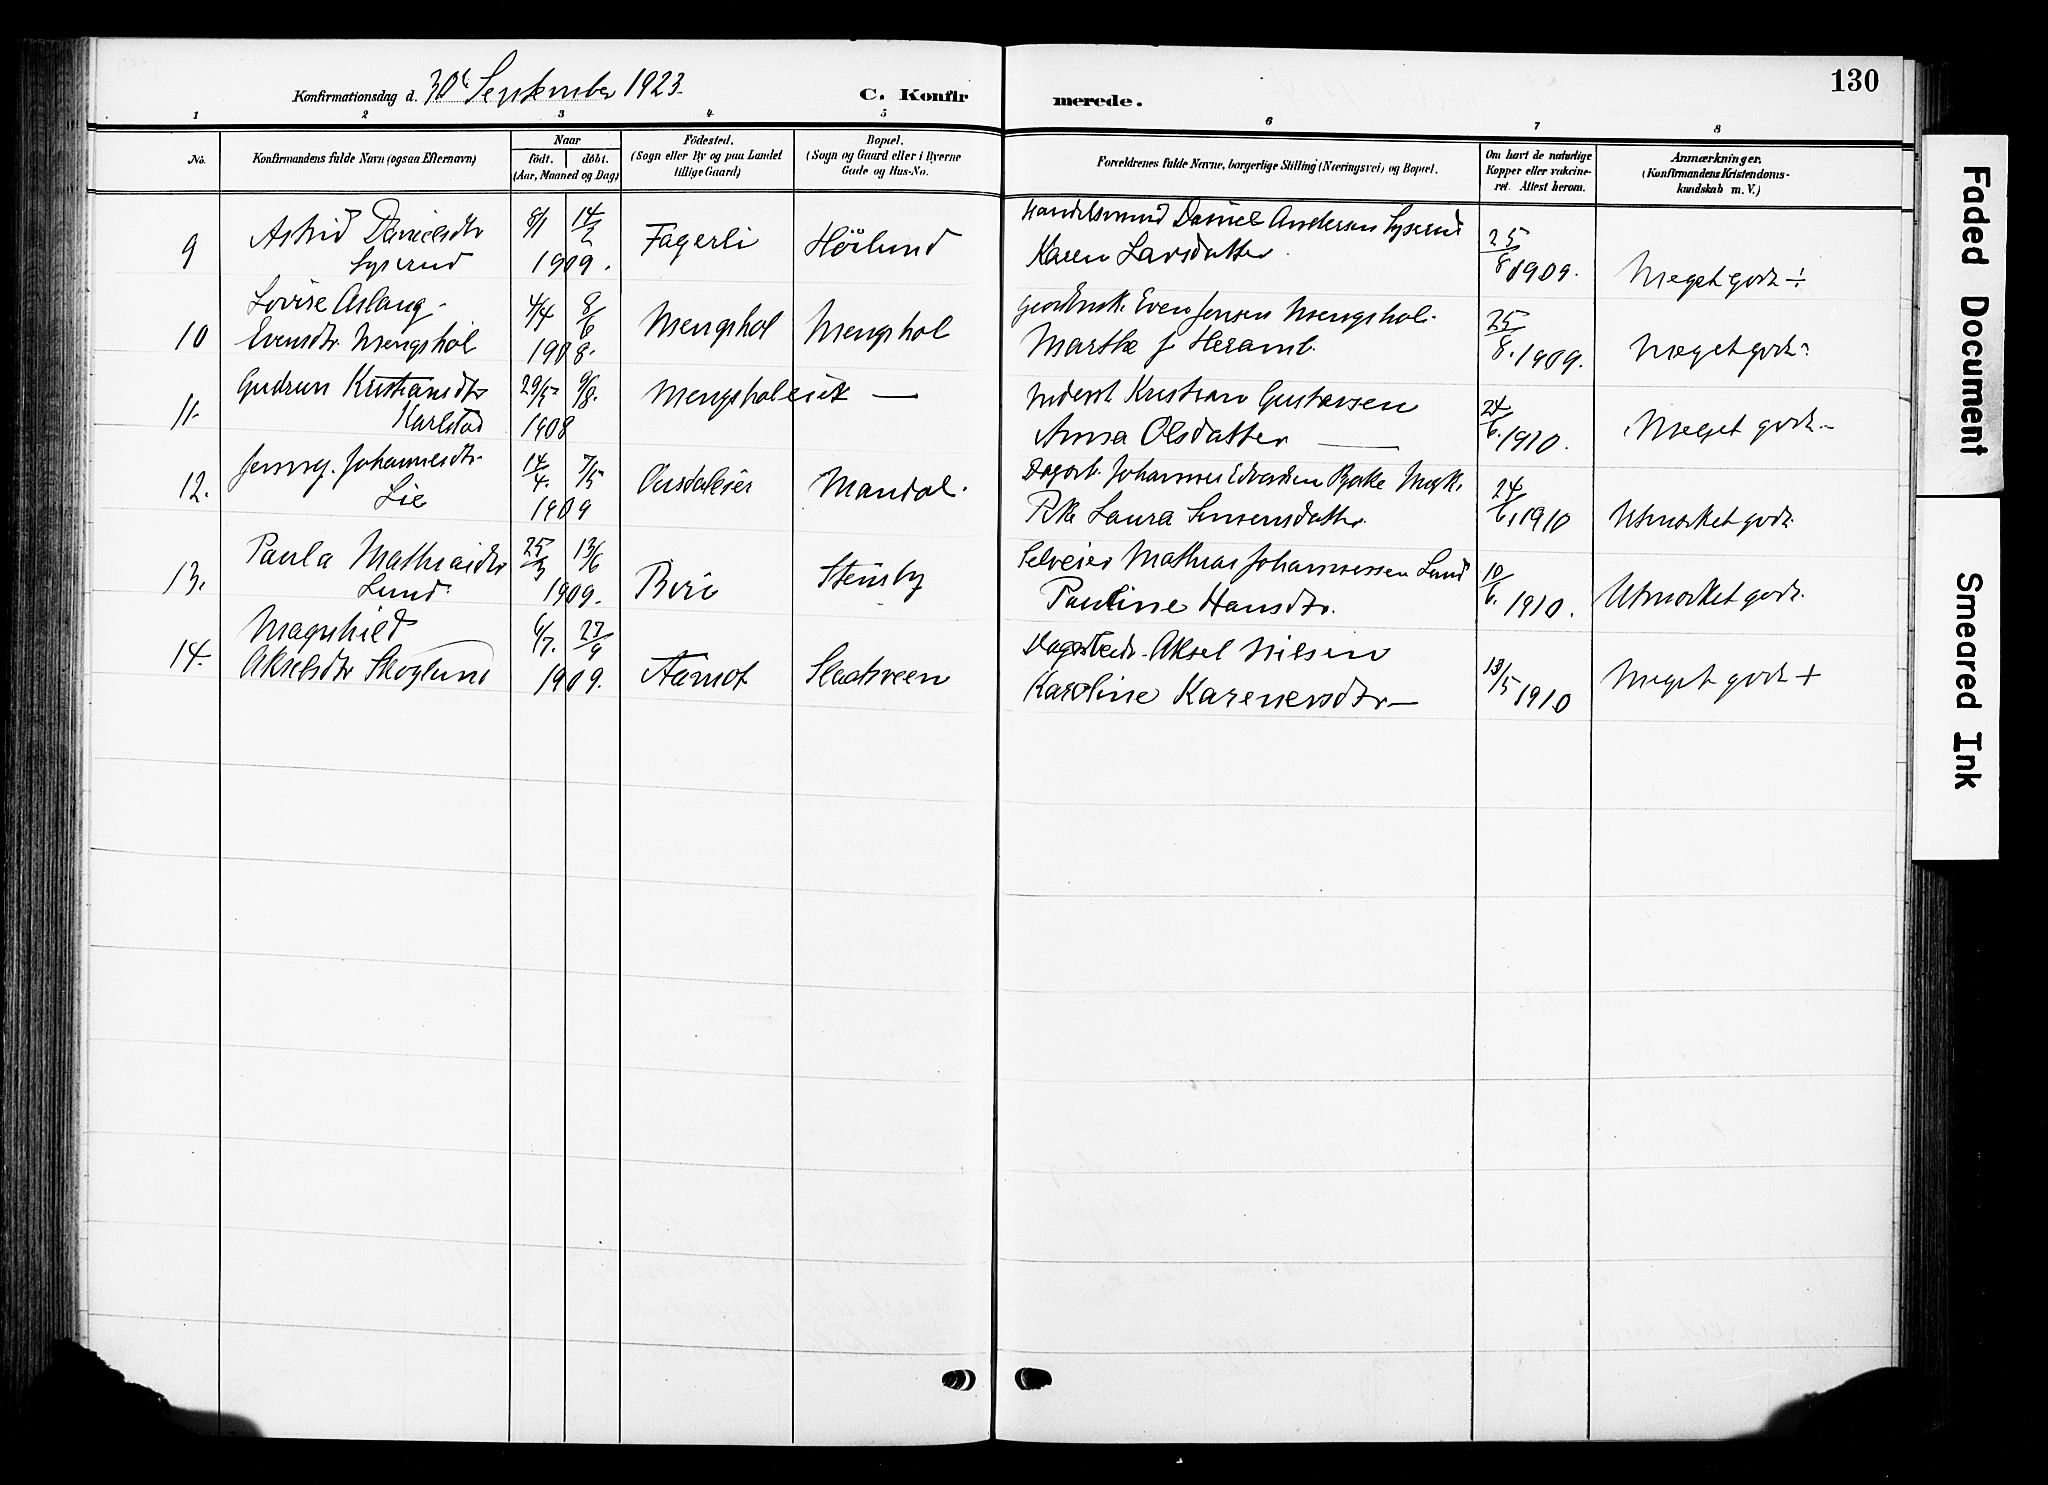 130
Konfirmationsdag d. 30 September 1923.
C. Konfir
merede.
1 2 3 4 5 6 7 8
No.
Konfirmandens fulde Navn (ogsaa Efternavn)
Naar
födt. döbt.
(Aar, Maaned og Dag)
Födested.
(Sogn eller By og paa Landet
tillige Gaard)
Bopæl.
(Sogn og Gaard eller i Byerne
Gade og Hus-No.
Forældrenes fulde Navne, borgerlige Stilling (Næringsvei) og Bopæl.
Om havt de naturlige
Kopper eller vakcine-
ret. Attest herom.
Anmærkninger.
(Konfirmandens Kristendoms-
kundskab m. V.)
9 Astrid Danielsdtr 8/1 14/2 Fagerli Höilund Handelsmand Daniel Andersen Lyserud 25/8 1909. Meget godt ÷
Lyserud 1909. Karen Larsdatter
10 Lovise Aslaug 4/4 8/6 Mengshol Mengshol Even Jensen Mengshol 25/8. 1909. Meget godt
Evensdtr Mengshol 1908. Marthe f. Heramb.
11. Gudrun Kristiansdtr 29/5 9/8. Mengsholeiet — Kristian Gustavsen 24/6. 1910. Meget godt
Karlstad 1908 Anna Olsdatter —
12. Jenny Johannesdtr. 14/4. 7/5 Mandal. Dagarb. Johannes Edvardsen 24/6. 1910 Utmærket godt
Lie 1909 Laura Simensdatter
13. Paula Mathiasdtr 25/3 13/6 Biri Stensby Selveier Mathias Johannessen Lund 10/6. 1910. Utmærket godt.
Lund. 1909. Pauline Hansdtr.
14. Magnhild 6/7. 27/9 Aamot Aksel Nilsen 18/5 1910 Meget godt +
Akselsdtr Skoglund 1909. Karoline Karenensdtr —
Faded Document
Smeared Ink